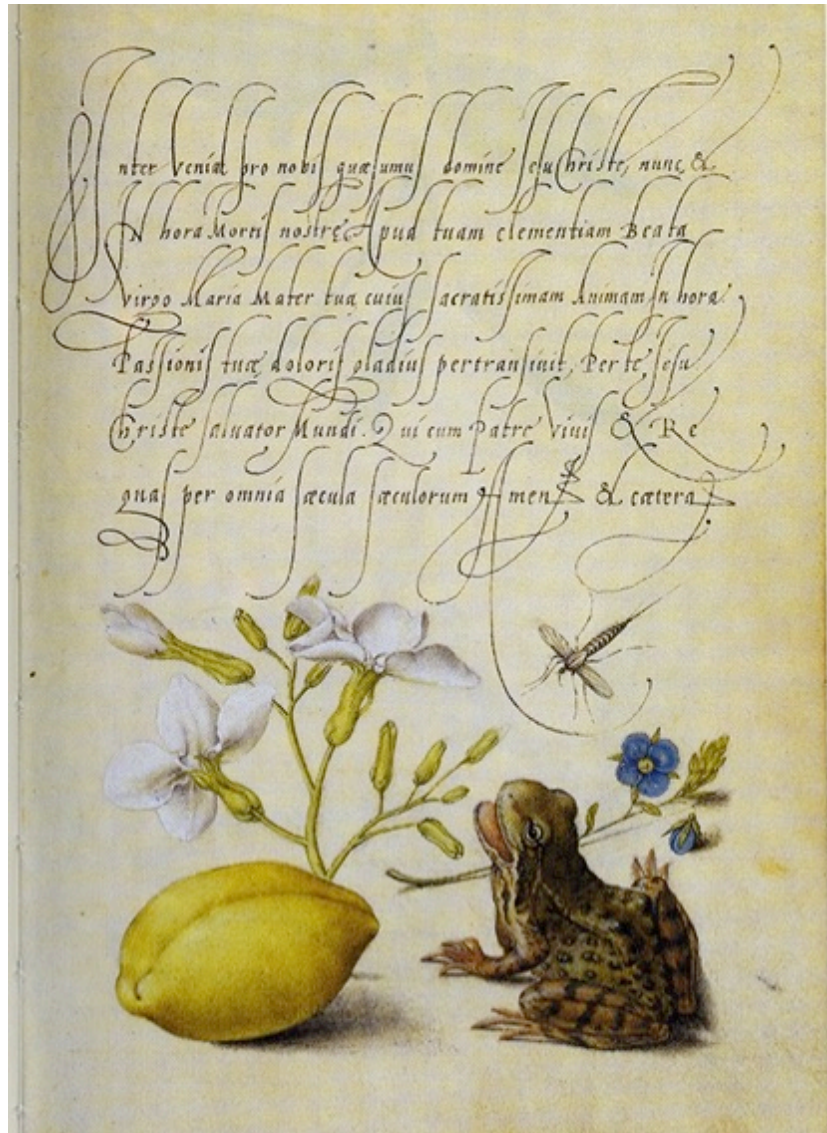 Interveniat pro nobis quæsumus domine Jesu Christe, nunc &
In hora Mortis nostre Apud tuam clementiam Beata
Virgo Maria Mater tua cuius sacratissimam Animam In hora
Passionis tuæ doloris gladius pertransiuit, Per te Jesu
Christe saluator Mundi. Qui cum Patre Viuis & Re
gnas per omnia sæcula sæculorum Amen & cætera